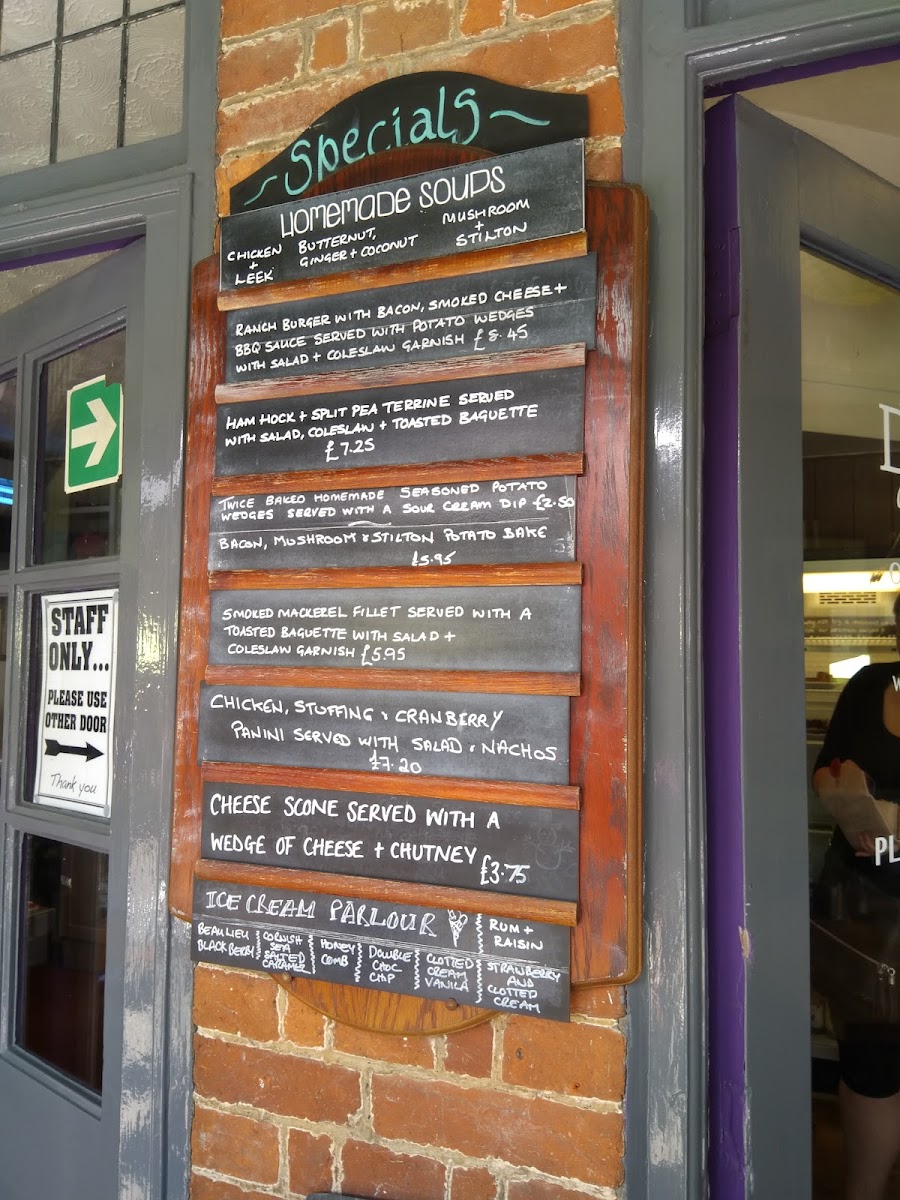 ~Specials~
HOMEMADE SOUPS
CHICKEN
+
LEEK
BUTTERNUT,
GINGER + COCONUT
MUSHROOM
+
STILTON
RANCH BURGER WITH BACON, SMOKED CHEESE +
BBQ SAUCE SERVED WITH POTATO WEDGES
WITH SALAD + COLESLAW GARNISH £8.45
HAM HOCK + SPLIT PEA TERRINE SERVED
WITH SALAD, COLESLAW + TOASTED BAGUETTE
£7.25
TWICE BAKED HOMEMADE SEASONED POTATO
WEDGES SERVED WITH A SOUR CREAM DIP £2.50
BACON, MUSHROOM & STILTON POTATO BAKE
£5.95
SMOKED MACKEREL FILLET SERVED WITH A
TOASTED BAGUETTE WITH SALAD +
COLESLAW GARNISH £5.95
CHICKEN, STUFFING & CRANBERRY
PANINI SERVED WITH SALAD & NACHOS
£7.20
CHEESE SCONE SERVED WITH A
WEDGE OF CHEESE + CHUTNEY £3.75
ICE CREAM PARLOUR
RUM +
RAISIN
BEAULIEU
BLACKBERRY
CORNISH
SEA
SALTED
CARAMEL
HONEY
COMB
DOUBLE
CHOC
CHIP
CLOTTED
CREAM
VANILA
STRAWBERRY
AND
CLOTTED
CREAM
STAFF
ONLY...
PLEASE USE
OTHER DOOR
Thank you
PL